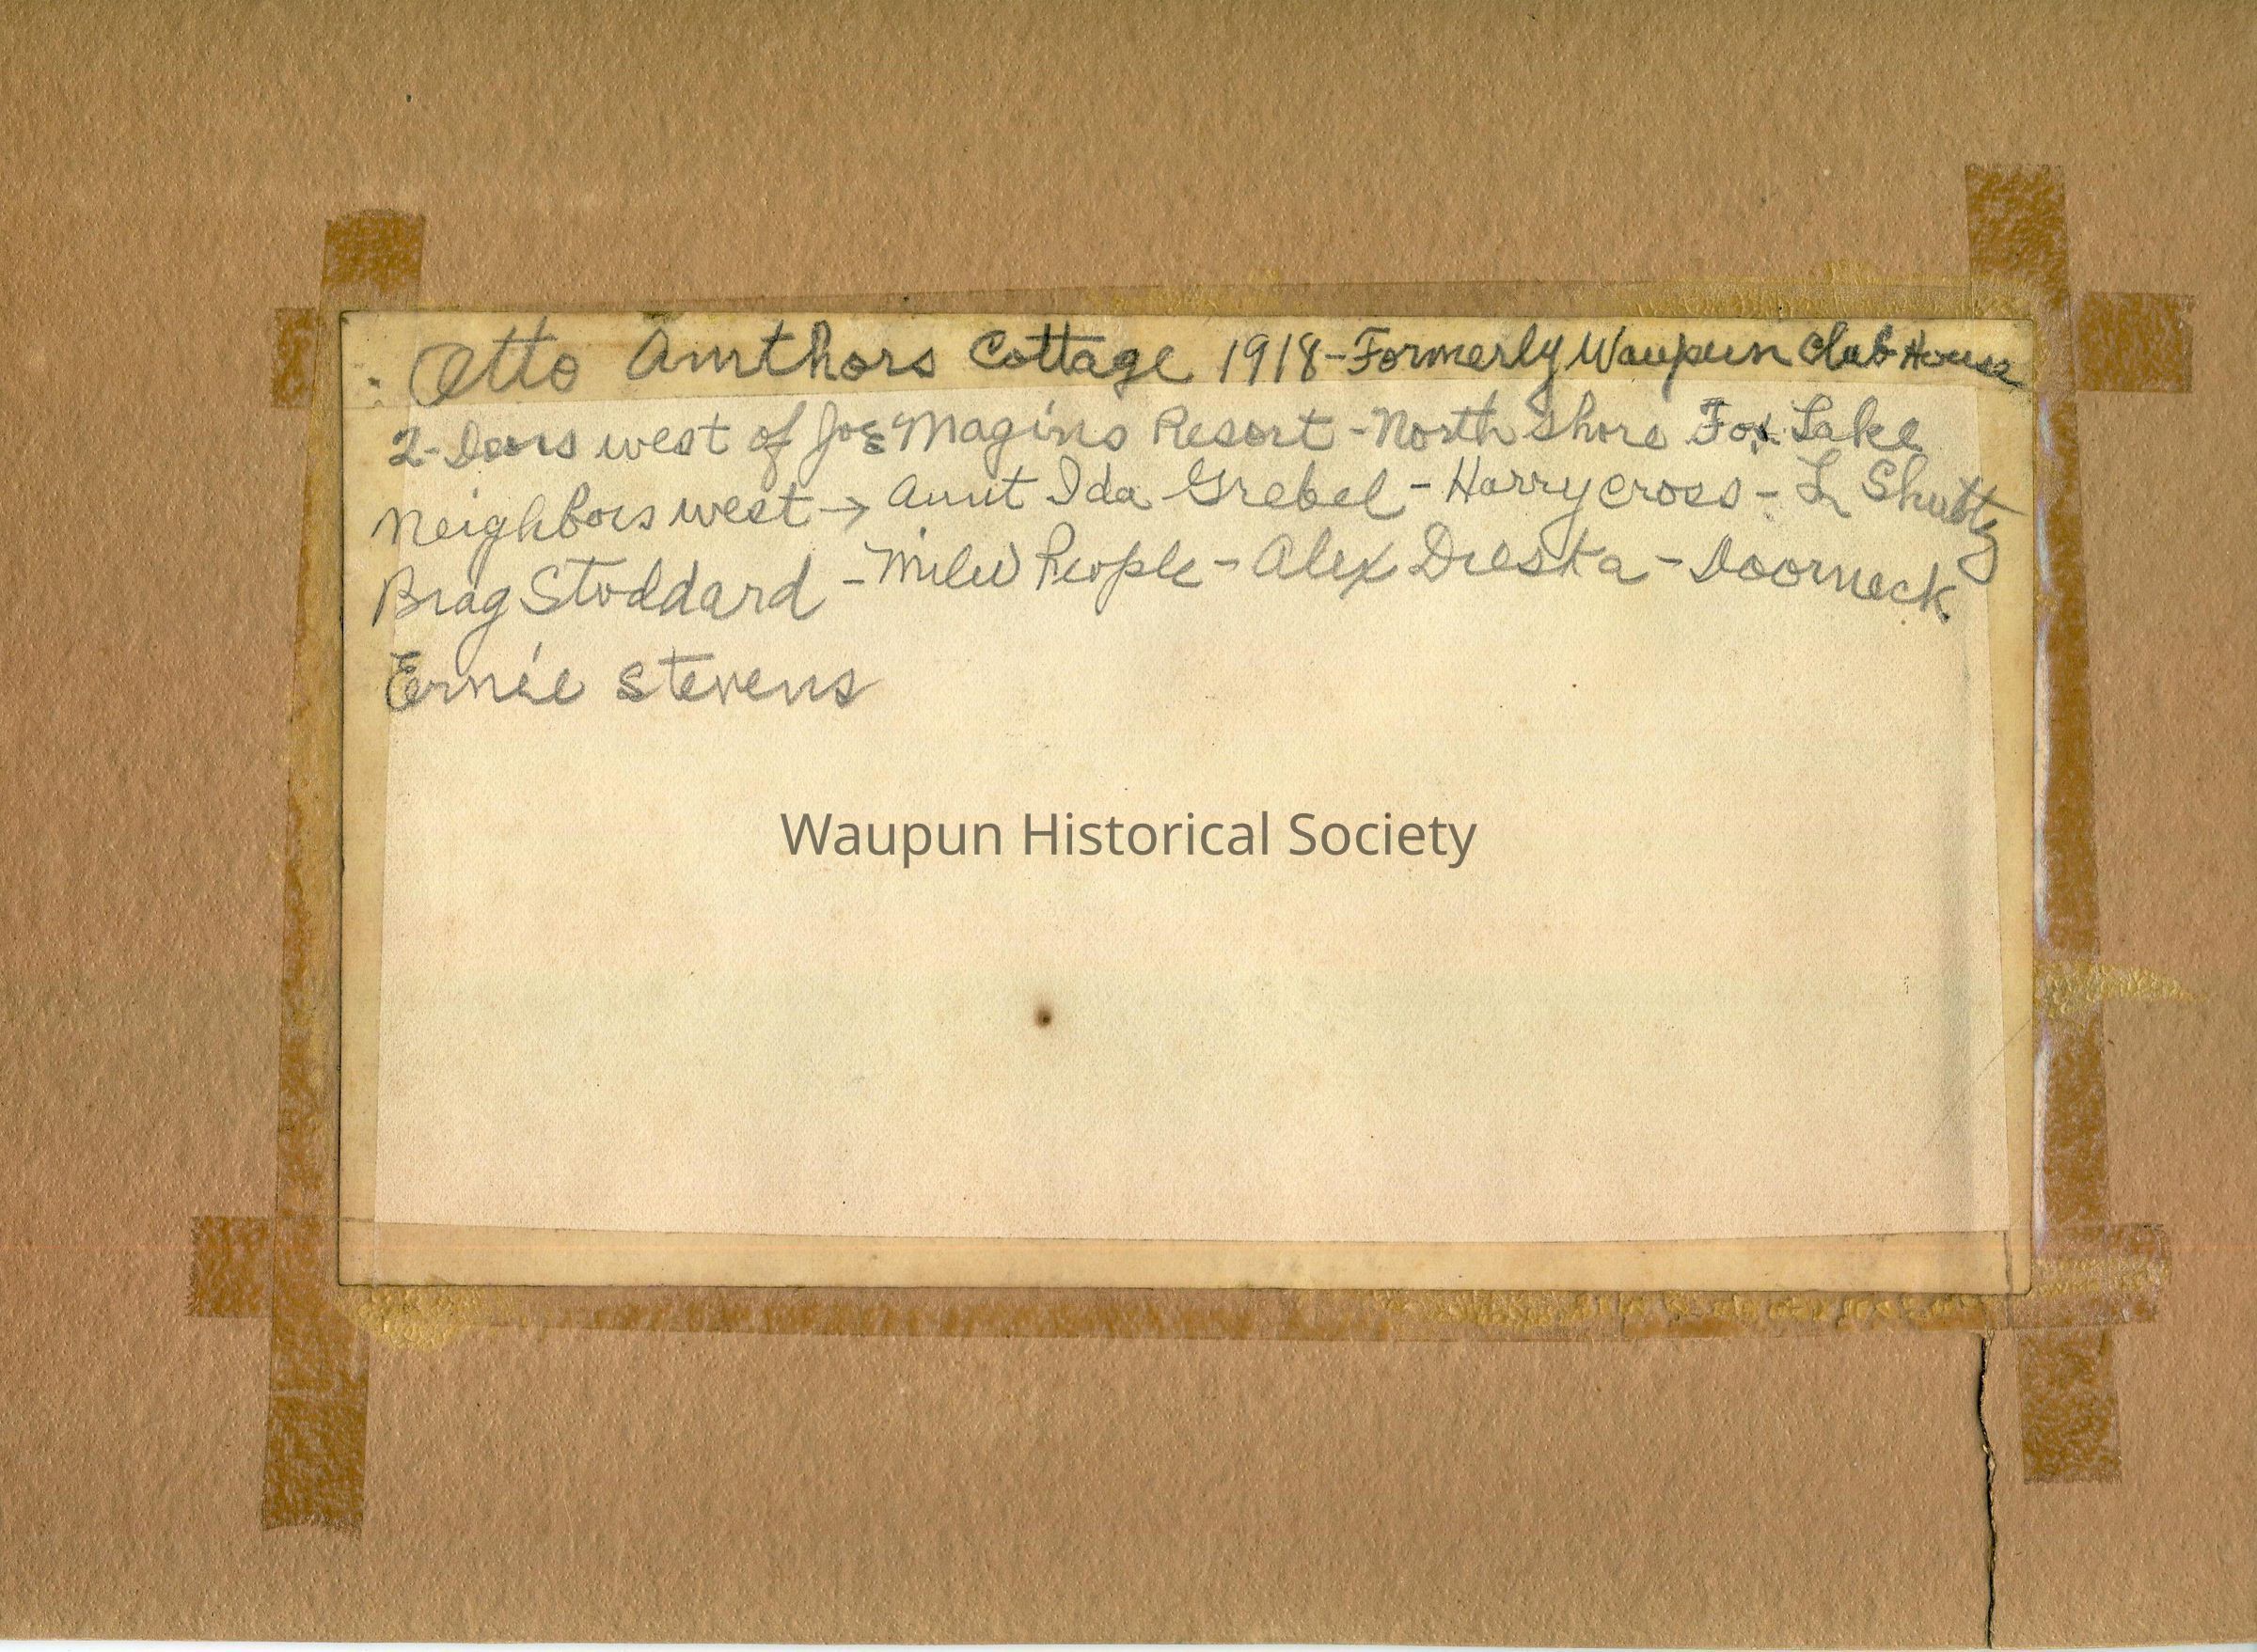 Otto Amthors Cottage 1918-Formerly Waupun Club House
2-Doors west of Joe Magins Resort-North Shore Fox Lake
Neighbors west → Aunt Ida Grebel - Harry Cross - L Shultz
Brag Stoddard - Milw People - Alex Dresta - Doorneck.
Ernie Stevens
Waupun Historical Society